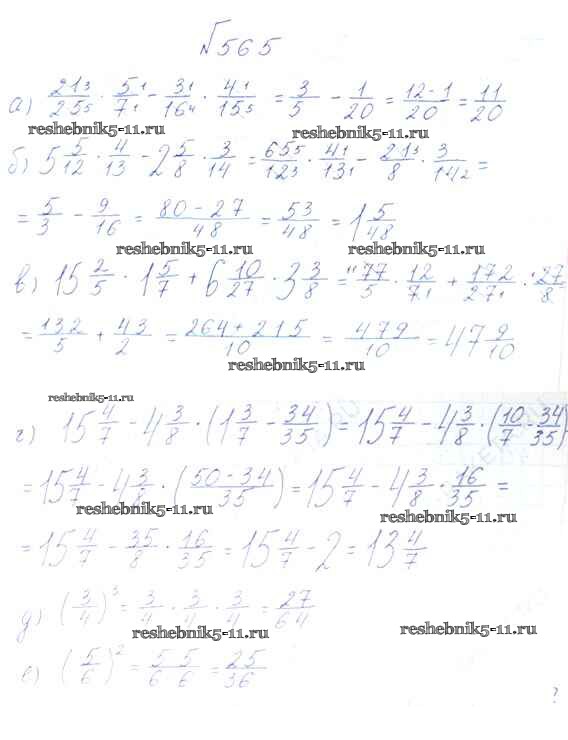 №565
а) 21/25 · 5/7 - 3/16 · 4/15 = 3/5 - 1/20 = (12-1)/20 = 11/20
reshebnik5-11.ru reshebnik5-11.ru
б) 5 5/12 · 4/13 - 2 5/8 · 3/14 = 65/12 · 4/13 - 21/8 · 3/14 =
= 5/3 - 9/16 = (80-27)/48 = 53/48 = 1 5/48
reshebnik5-11.ru reshebnik5-11.ru
в) 15 2/5 · 1 5/7 + 6 10/27 · 3 3/8 = 77/5 · 12/7 + 172/27 · 27/8 =
= 132/5 + 43/2 = (264+215)/10 = 479/10 = 47 9/10
reshebnik5-11.ru
reshebnik5-11.ru
г) 15 4/7 - 4 3/8 · (1 3/7 - 34/35) = 15 4/7 - 4 3/8 · (10/7 - 34/35)
= 15 4/7 - 4 3/8 · ((50-34)/35) = 15 4/7 - 4 3/8 · 16/35 =
reshebnik5-11.ru reshebnik5-11.ru
= 15 4/7 - 35/8 · 16/35 = 15 4/7 - 2 = 13 4/7
д) (3/4)³ = 3/4 · 3/4 · 3/4 = 27/64
reshebnik5-11.ru reshebnik5-11.ru
е) (5/6)² = 5/6 · 5/6 = 25/36
?